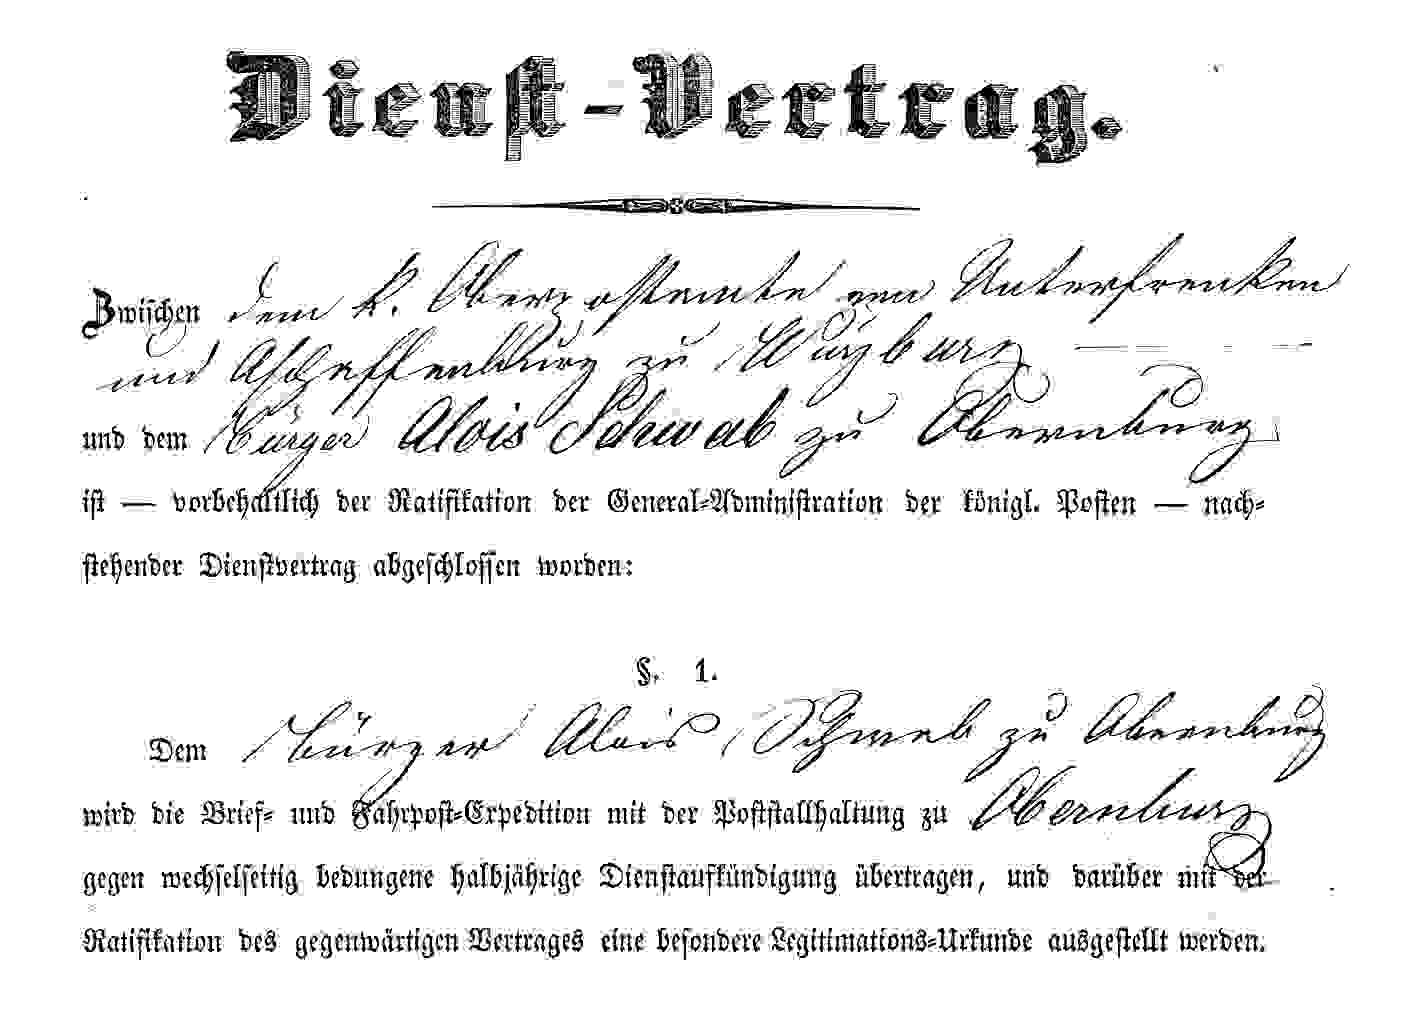 Dienst-Vertrag.
Zwischen dem k. Oberpostamte von Unterfranken
und Aschaffenburg zu Würzburg
und dem Bürger Alois Schwab zu Obernburg
ist — vorbehaltlich der Ratifikation der General-Administration der königl. Posten — nach-
stehender Dienstvertrag abgeschlossen worden:
§. 1.
Dem Bürger Alois Schwab zu Obernburg
wird die Brief- und Fahrpost-Expedition mit der Poststallhaltung zu Obernburg
gegen wechselseitig bedungene halbjährige Dienstaufkündigung übertragen, und darüber mit der
Ratifikation des gegenwärtigen Vertrages eine besondere Legitimations-Urkunde ausgestellt werden.